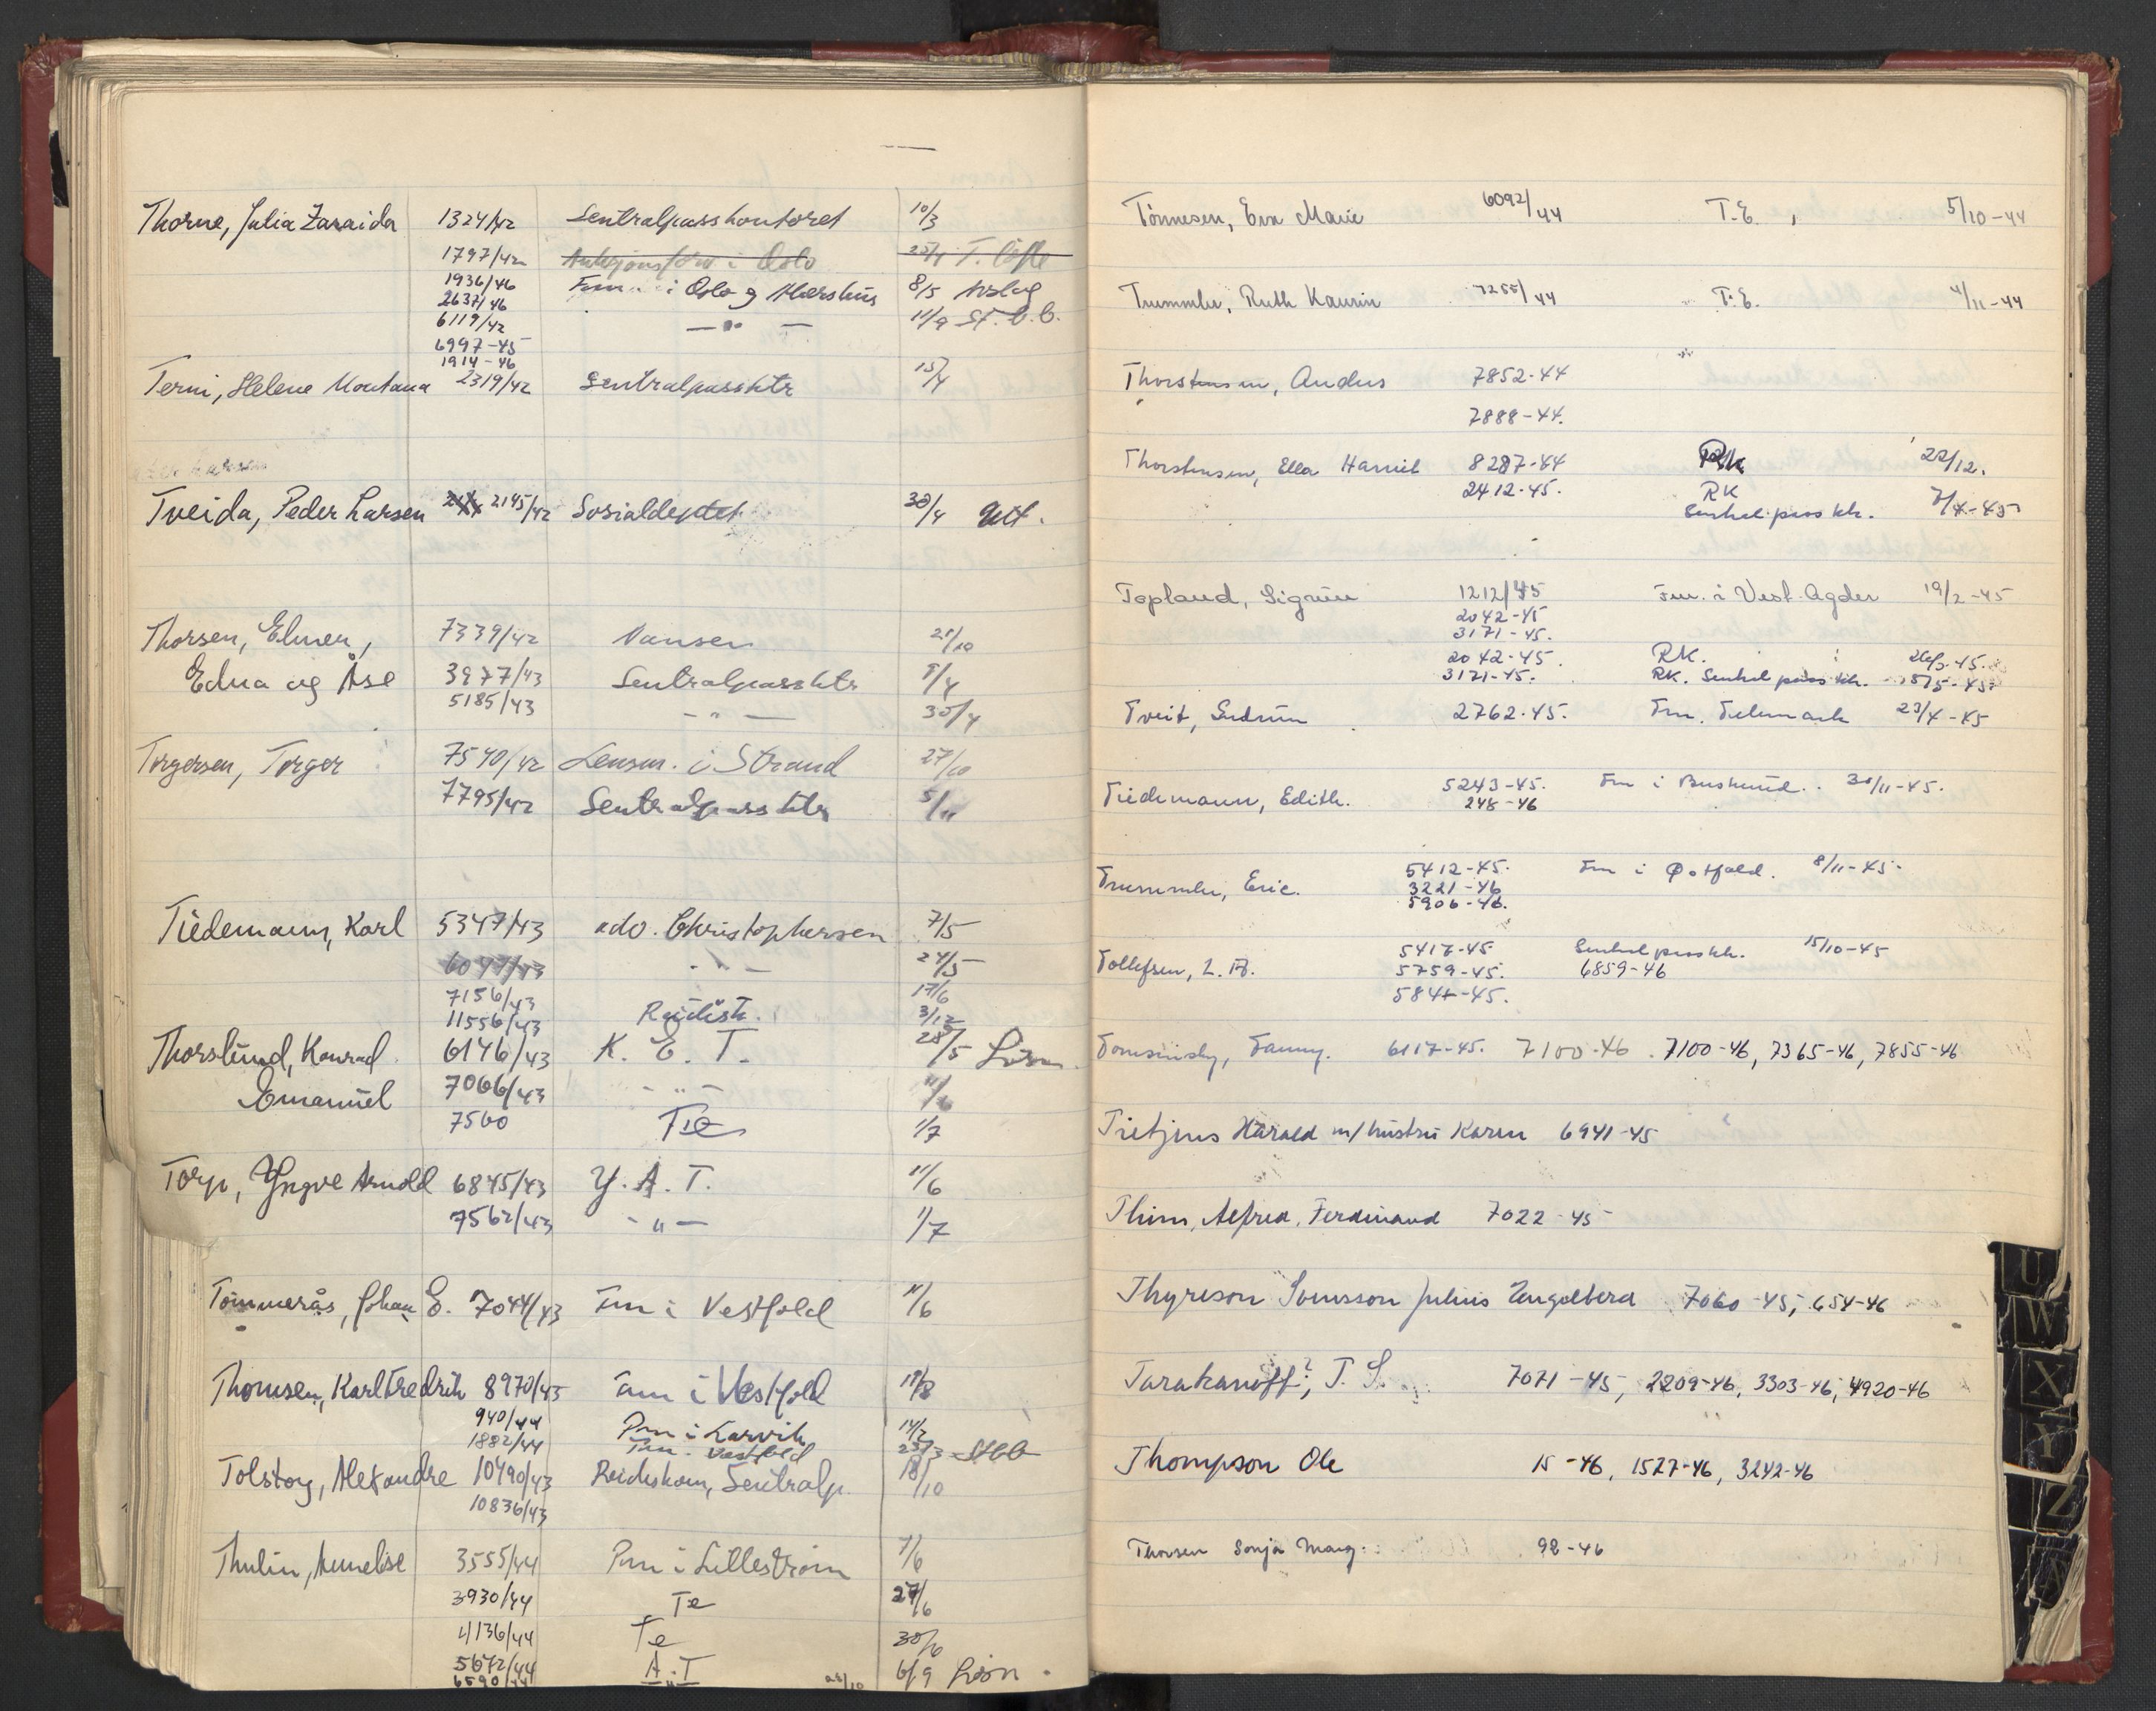 Thorne, Julia Zaraida 1324/42 Sentralpasskontoret 10/3
1797/42 i Oslo 25/4
1936/46 Fm. i Oslo og Akershus 8/5 Avslag
2637/46
6119/42 — " — 11/9 St. b. b.
6997-45
1914-46
Terni, Helene Montana 2319/42 Sentralpassktr 15/4
Tveida, Peder Larsen 2145/42 Sosialdeptet 30/4 Utt.
Thorsen, Elmer, 7339/42 Nansen 21/10
Edna og Åse 3977/43 Sentralpassktr 8/4
5185/43 - " - 30/4
Torgersen, Torger 7540/42 Lensm. i Strand 27/10
7795/42 Sentralpassktr 5/11
Tiedemann, Karl 5347/43 adv. Christophersen 7/5
6047/43 - " - 24/5
7156/43 17/6
11556/43 3/12
Thorslund, Konrad 6146/43 K. E. T. 28/5 Lisn
Emanuel 7066/43 - " -
7560 Te 1/7
Torp, Yngve Arnold 6845/43 Y. A. T. 11/6
7562/43 - " - 1/7
Tømmerås, Johan E. 7044/43 Fm i Vestfold 11/6
Thomsen, Karl Fredrik 8970/43 Fm i Vestfold 18/8
940/44 Pm i Larvik 14/2
1882/44 Fm. Vestfold 23/3 Stbb
Tolstoy, Alexandre 10490/43 Reichskom, Sentralp. 18/10
10836/43
Thulin, Annelise 3555/44 Pm i Lillestrøm 7/6
3930/44 Te 27/6
4136/44 Te 30/6
5672/44 A. T 6/9 Lisn.
6590/44 — " — 28/10
Tönnesen, Eva Marie 6092/44 T.E. 5/10-44
Trummler, Ruth Kaurin 7255/44 T.E. 4/11-44
Thorstensen, Andus 7852-44
7888-44.
Thorstensen, Ella Harriet 8287-44 RK 22/12.
2412-45. RK
Sentralpassktr. 7/4-45
Topland, Sigrun 1212/45 Fm. i Vest-Agder 19/2-45
2042-45
3171-45.
2042-45. RK. 26/3-45.
3171-45. RK. Sentralpassktr. 15/5-45
Tveit, Gudrun 2762-45. Fm. Telemark 23/4-45
Tiedemann, Edith. 5243-45. Fm i Buskerud. 30/11-45.
248-46
Trummler, Eric. 5412-45. Fm i Østfold. 8/11-45.
3221-46
5906-46.
Tollefsen, L. A. 5417-45 Sentralpassktr. 15/10-45
5759-45. 6859-46
5844-45.
Tomsinsky, Fanny. 6117-45. 7100-46. 7100-46, 7365-46, 7855-46
Tietjens Harald m/hustru Karen 6941-45
Thim, Alfred, Ferdinand 7022-45
Thyreson Svensson Julius Engelberd 7060-45, 654-46
Tarakanoff?, T. S. 7071-45, 2209-46, 3303-46, 4920-46
Thompson Ole 15-46, 1527-46, 3242-46
Thorsen Sonja Marg. 92-46
U
W
X
Y
Z